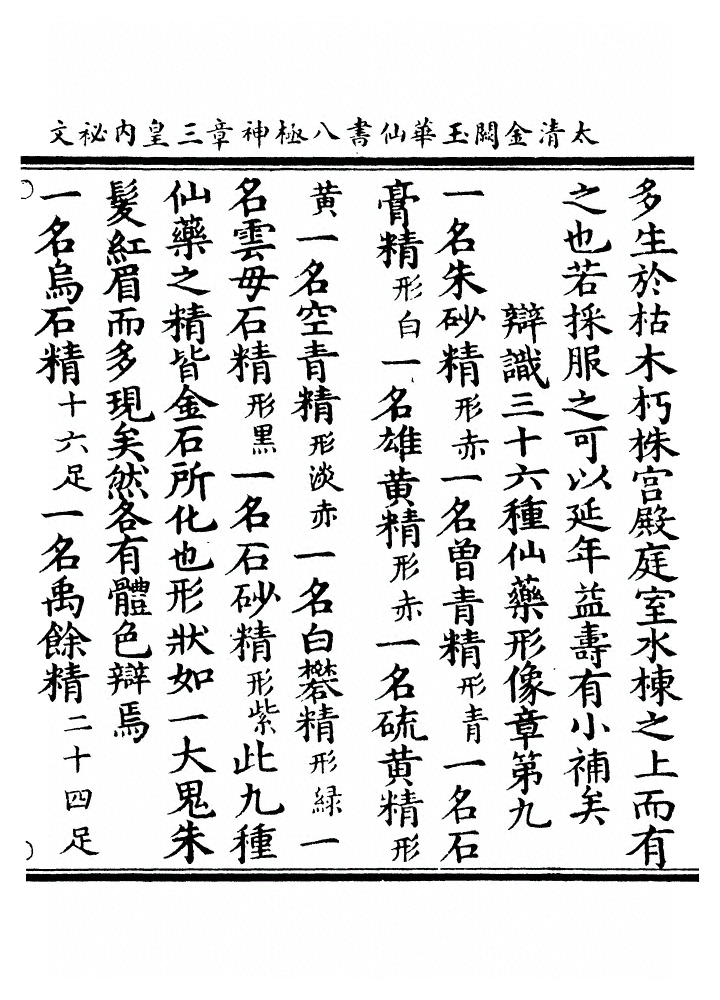 太清金闕玉華仙書八極神章三皇內祕文
多生於枯木朽株宫殿庭室水棟之上而有
之也若採服之可以延年益壽有小補矣
辯識三十六種仙藥形像章第九
一名朱砂精形赤一名曾青精形青一名石
膏精形白一名雄黄精形赤一名硫黄精形
黄一名空青精形淡赤一名白礬精形緑一
名雲母石精形黑一名石砂精形紫此九種
仙藥之精皆金石所化也形狀如一大鬼朱
髮紅眉而多現矣然各有體色辯焉
一名烏石精十六足一名禹餘精二十四足